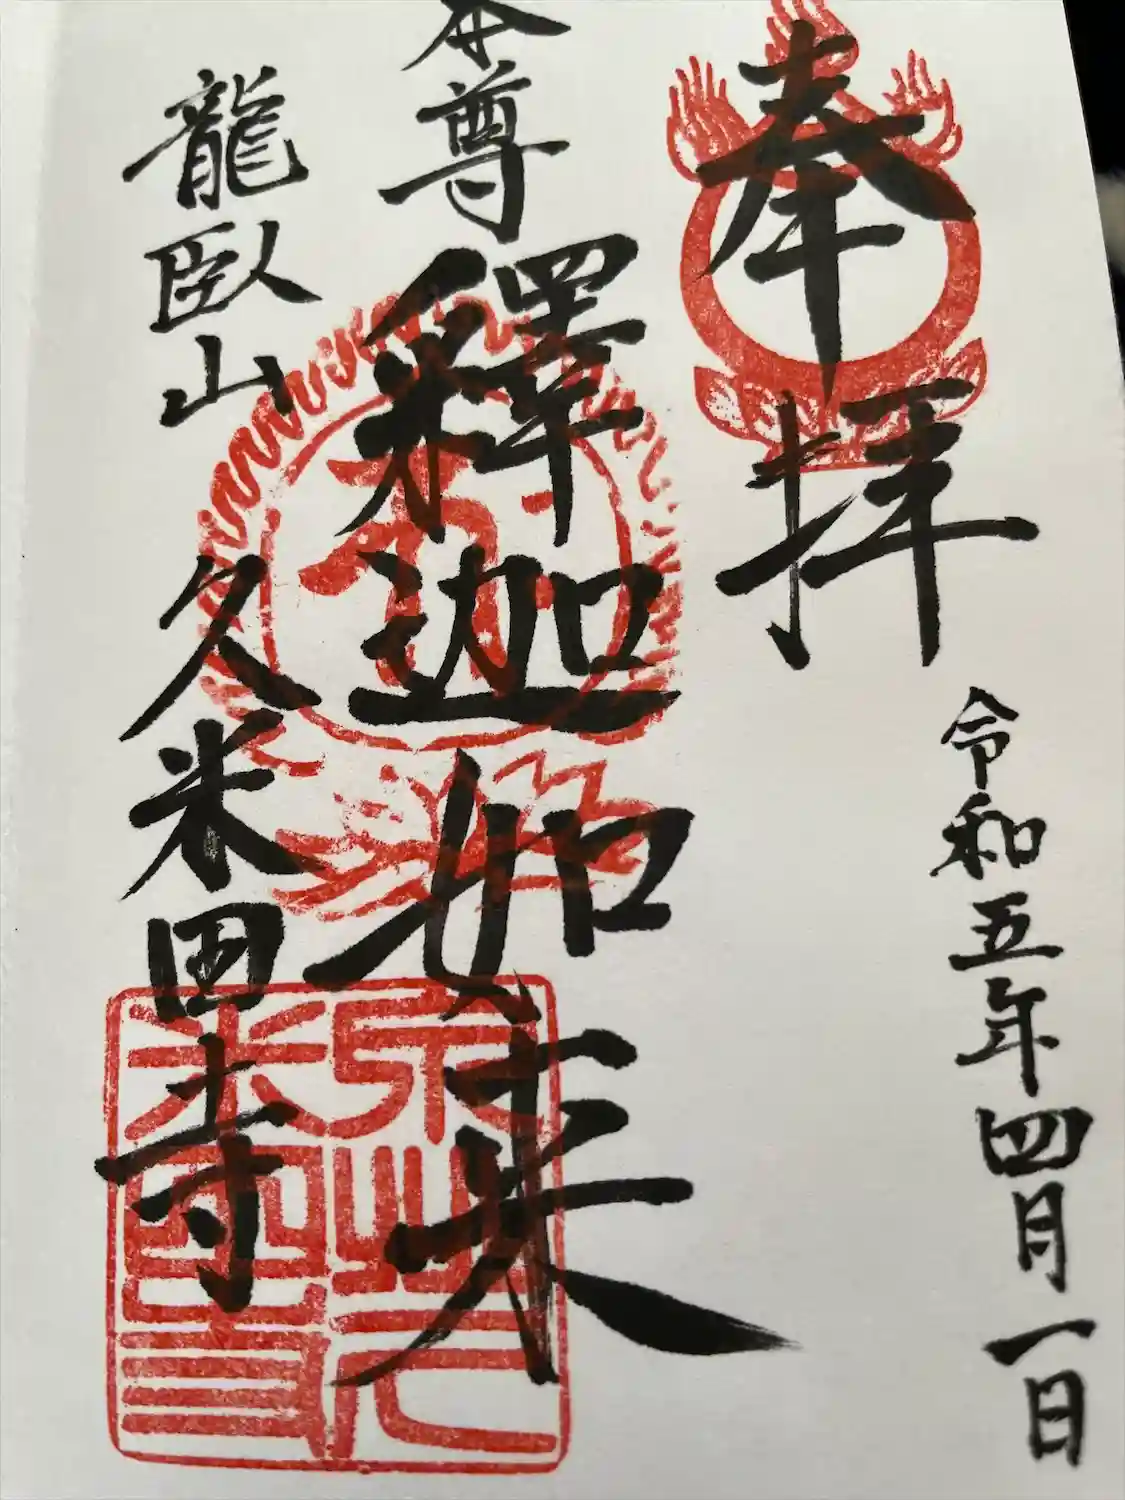 奉拝
令和五年四月一日
本尊 釋迦如来
龍臥山 久米田寺